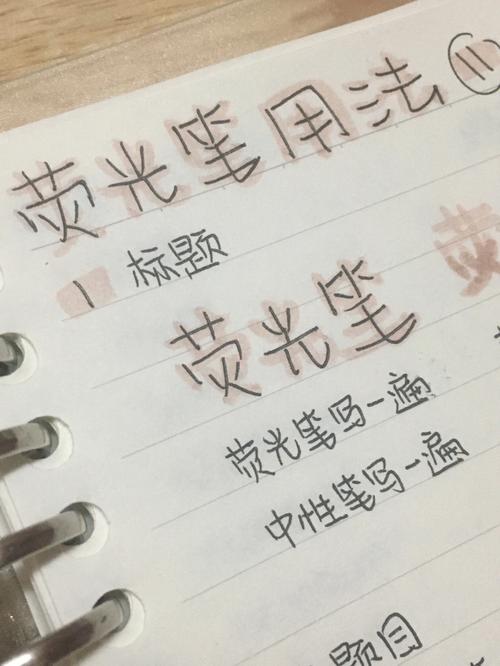 荧光笔用法㊁
1 标题
荧光笔 荧
荧光笔写一遍
中性笔写一遍
题目